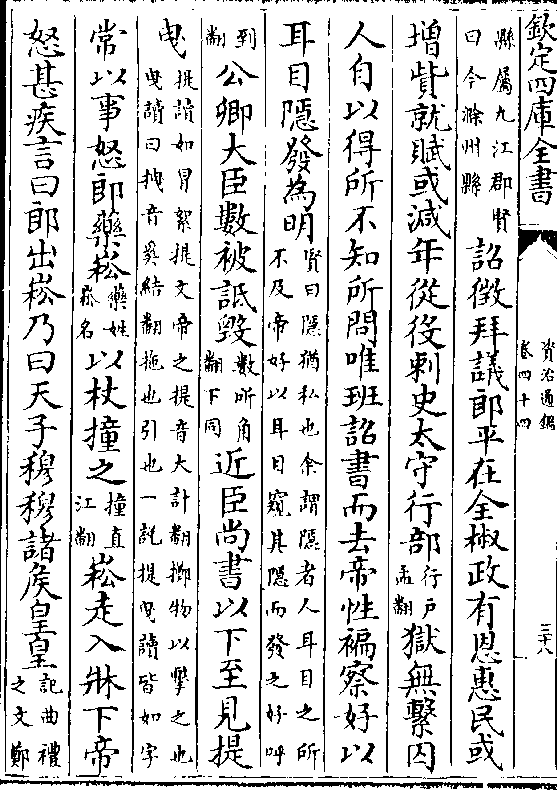 欽定四庫全書
資治通鑑
卷四十四
二十八
縣屬九江郡賢
曰今滁州縣
詔徵拜議郎平在全椒政有恩惠民或
增貲就賦或減年從役刺史太守行部
行戶
孟翻
獄無繫囚
人自以得所不知所問唯班詔書而去帝性褊察好以
耳目隱發為明
賢曰隱猶私也余謂隱者人耳目之所
不及帝好以耳目窺其隱而發之好呼
到
翻
公卿大臣數被詆毀
數所角
翻下同
近臣尚書以下至見提
曳
提讀如冒絮提文帝之提音大計翻擲物以擊之也
曳讀曰拽音奚結翻拖也引也一說提曳讀皆如字
常以事怒郎藥崧
藥姓
崧名
以杖撞之
撞直
江翻
崧走入牀下帝
怒甚疾言曰郎出崧乃曰天子穆穆諸侯皇皇
記曲禮
之文鄭